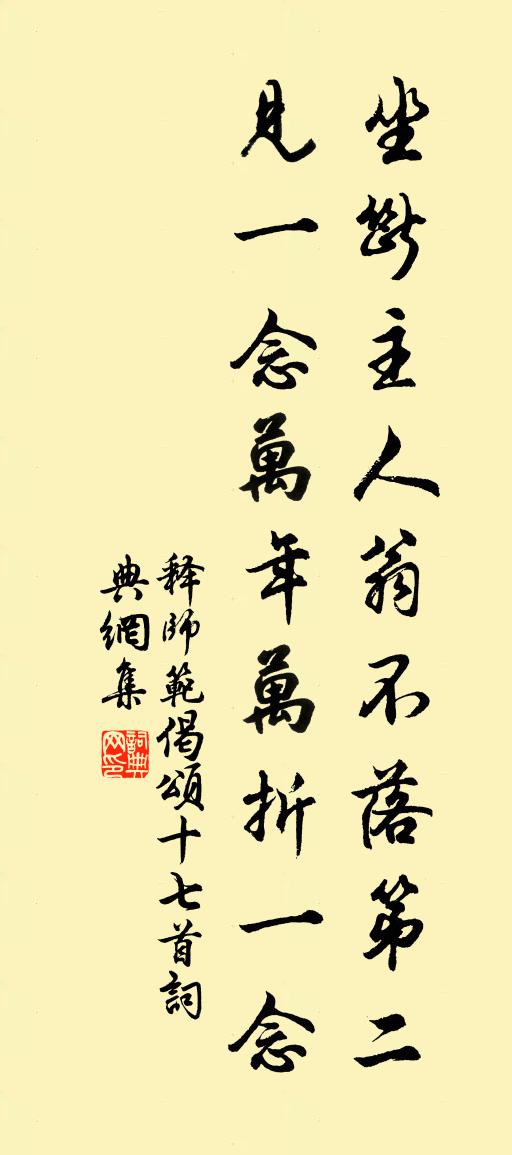 坐斷主人翁不落第二
見一念萬年萬折一念
释師範偈頌十七首詞
典網集
詞典
网印